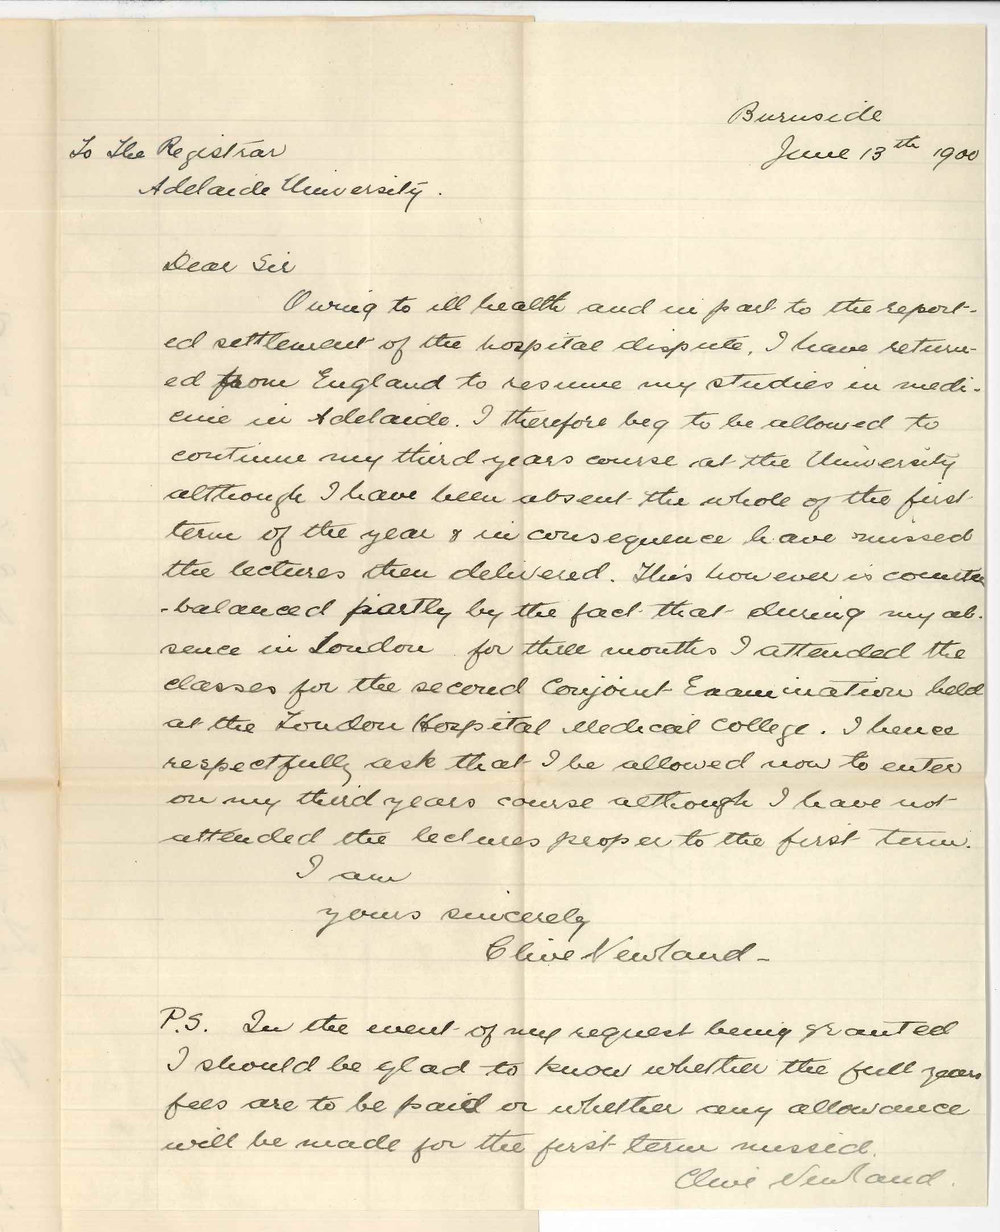 Burnside
June 13th 1900
To The Registrar
Adelaide University.
Dear Sir
Owing to ill health and in part to the report-
ed settlement of the hospital dispute, I have return-
ed from England to resume my studies in medi-
cine in Adelaide. I therefore beg to be allowed to
continue my third years course at the University
although I have been absent the whole of the first
term of the year & in consequence have missed
the lectures then delivered. This however is counter
-balanced partly by the fact that during my ab-
sence in London for three months I attended the
classes for the second Conjoint Examination held
at the London Hospital Medical College. I hence
respectfully ask that I be allowed now to enter
on my third years course although I have not
attended the lectures proper to the first term.
I am
yours sincerely
Clive Newland -
P.S. In the event of my request being granted
I should be glad to know whether the full years
fees are to be paid or whether any allowance
will be made for the first term missed.
Clive Newland.